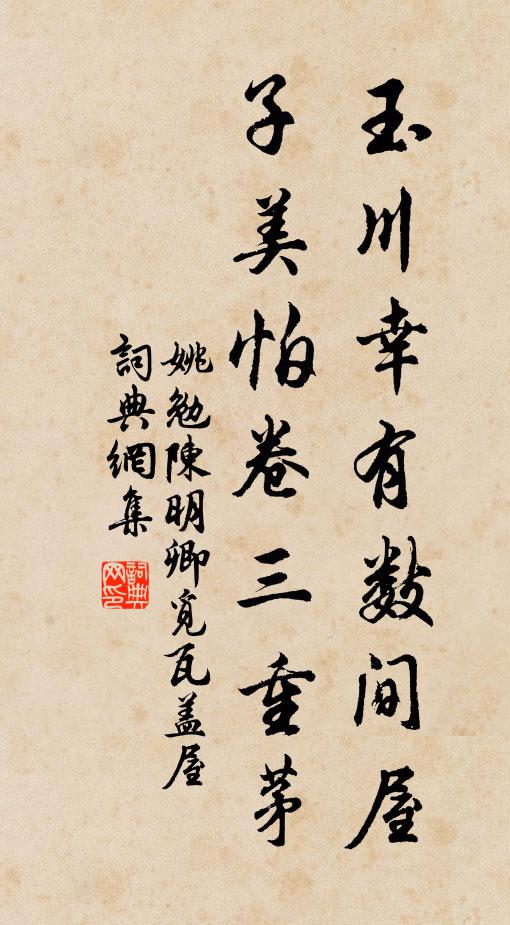 玉川幸有数间屋
子美怕卷三重茅
姚勉陳明卿覓瓦盖屋
詞典網集
詞典网印